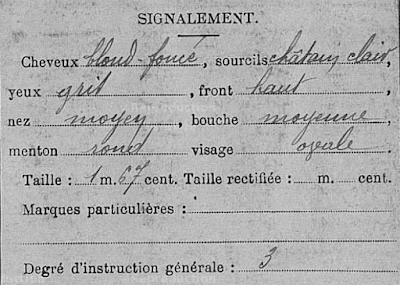 SIGNALEMENT.
Cheveux blond-foncé, sourcils châtain clair,
yeux gris, front haut,
nez moyen, bouche moyenne,
menton rond visage ovale
Taille : 1 m. 67 cent. Taille rectifiée : m. cent.
Marques particulières :
Degré d'instruction générale : 3